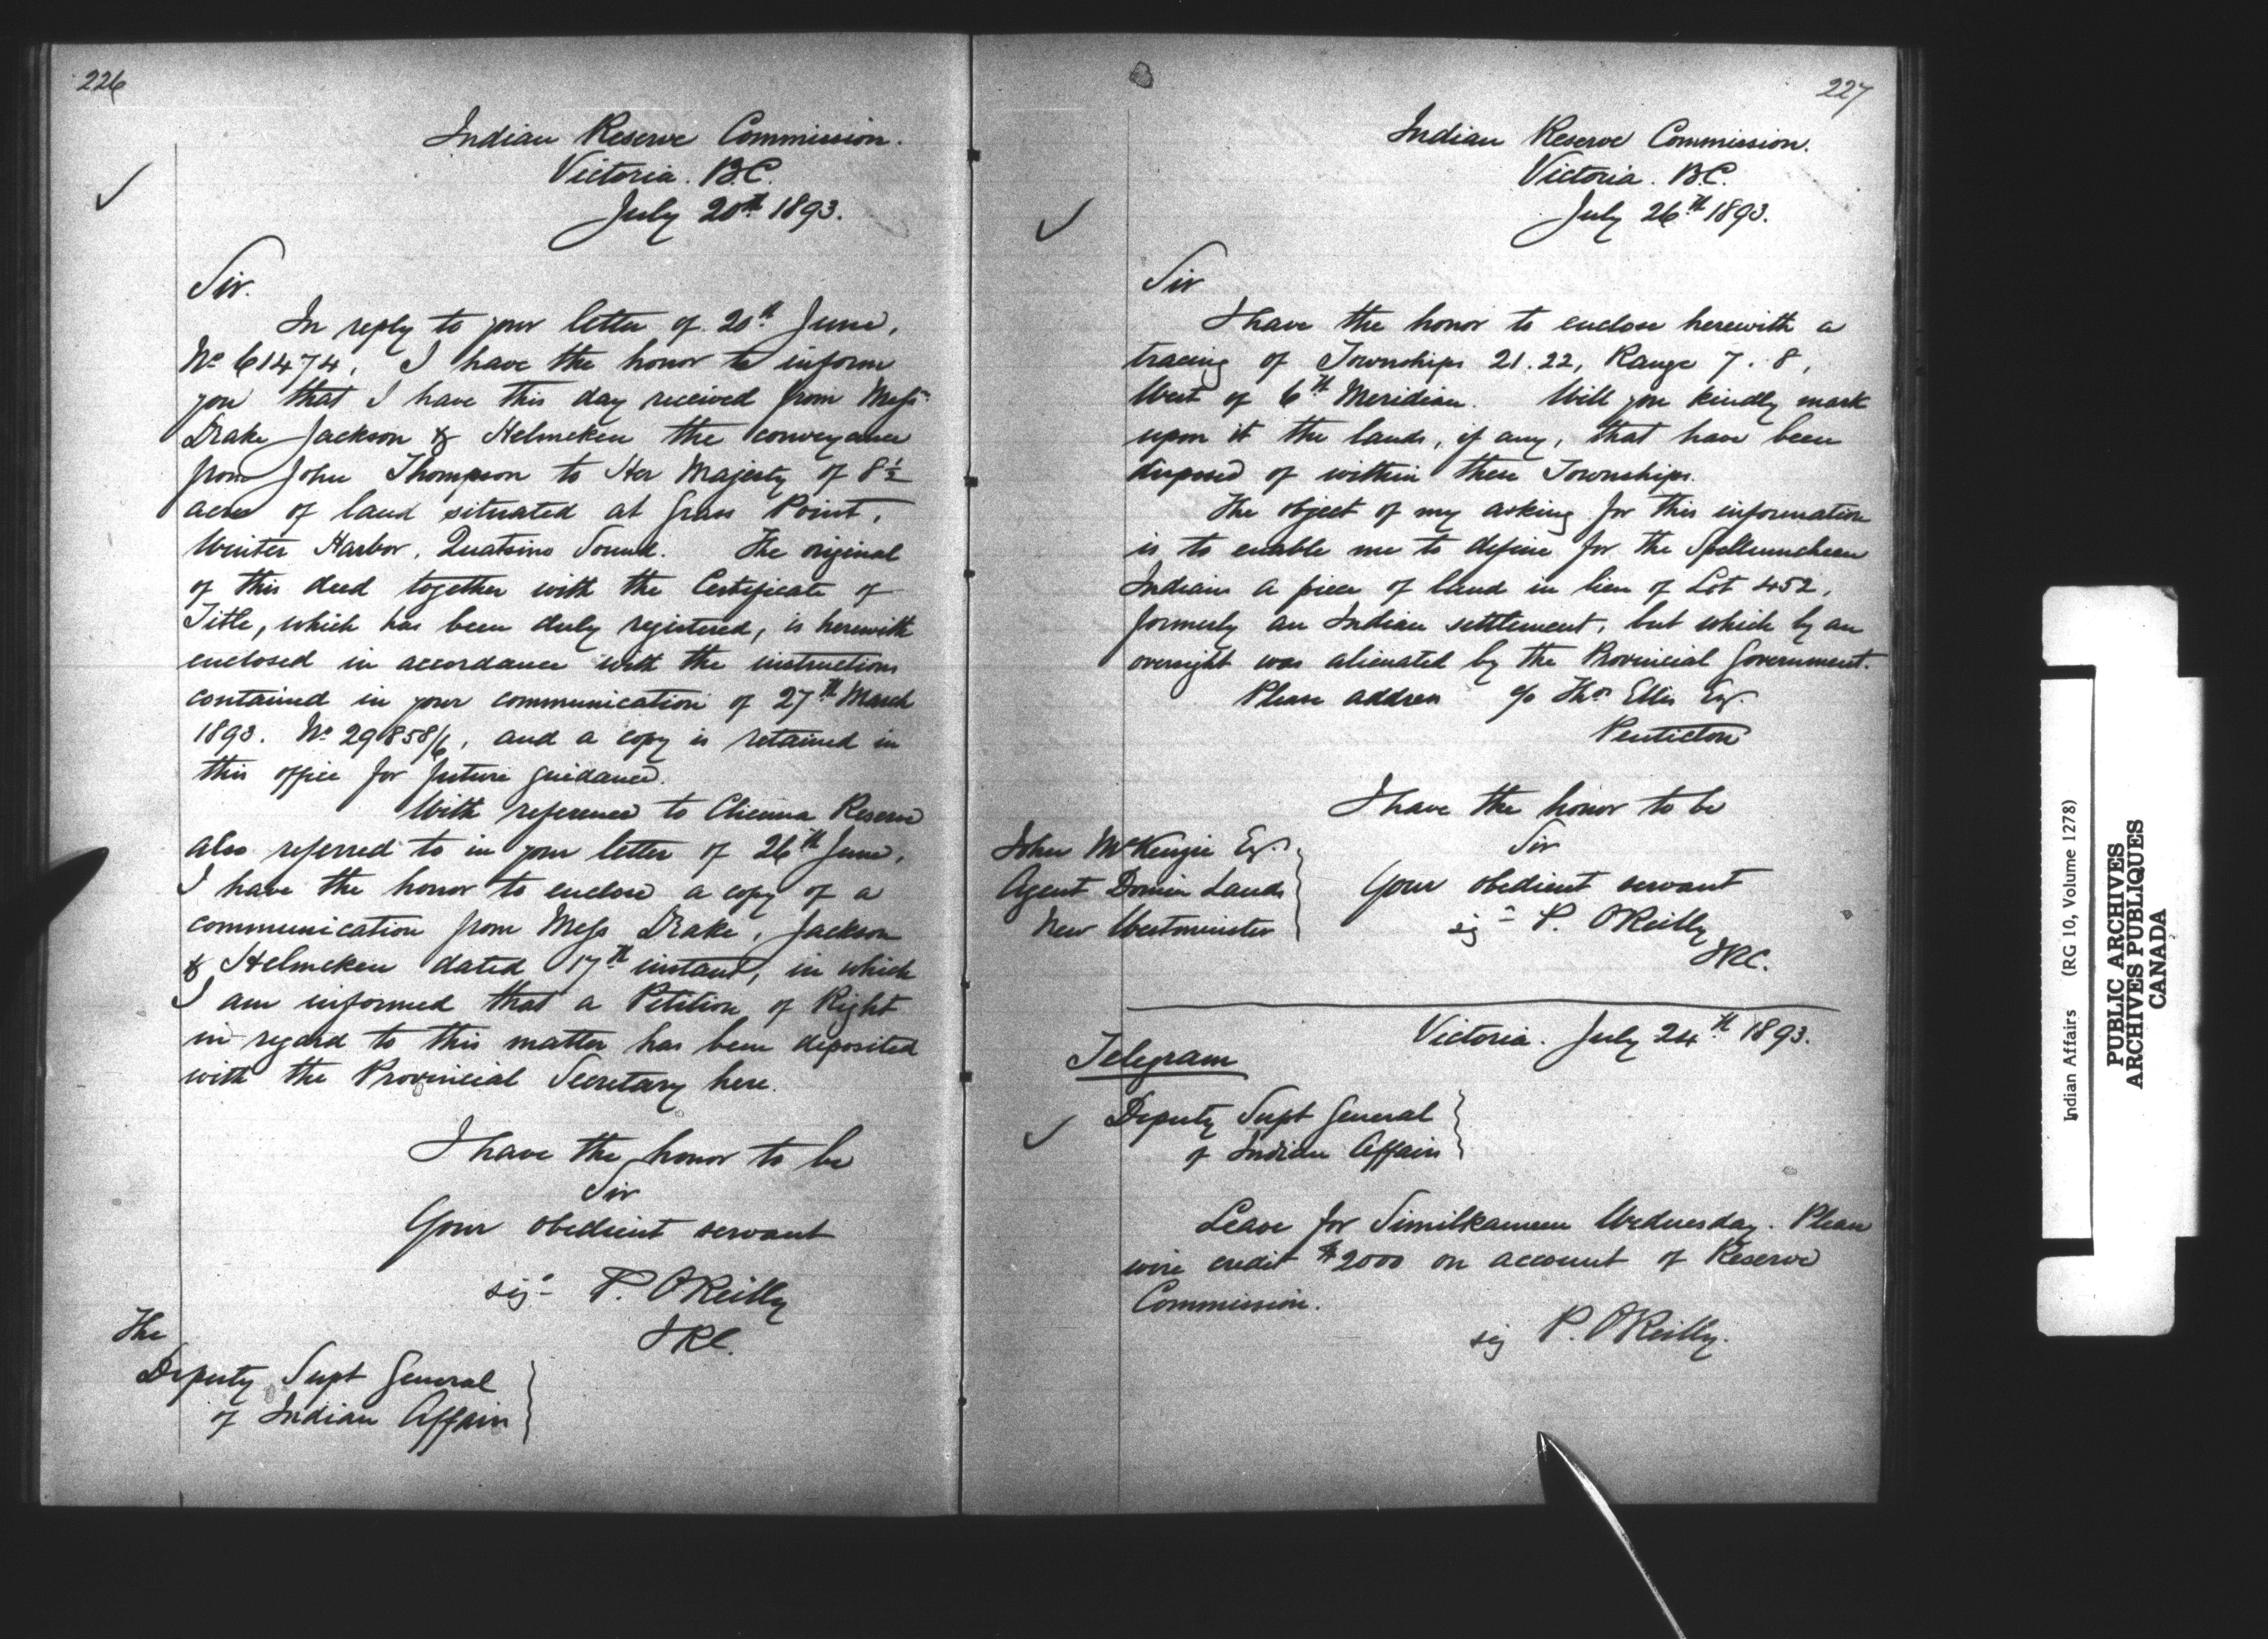 226
Indian Reserve Commission.
Victoria. B.C.
July 20th 1893.
Sir.
In reply to your letter of 20th June,
No 61474, I have the honor to inform
you that I have this day received from Mess
Drake Jackson & Helmcken the conveyance
from John Thompson to Her Majesty of 8½
acres of land situated at Grass Point,
Winter Harbor, Quatsino Sound. The original
of this deed together with the Certificate of
Title, which has been duly registered, is herewith
enclosed in accordance with the instructions
contained in your communication of 27th March
1893. No 29858/6, and a copy is retained in
this office for future guidance.
With reference to Reserve
also referred to in your letter of 26th June,
I have the honor to enclose a copy of a
communication from Mess Drake, Jackson
& Helmcken dated 17th instant, in which
I am informed that a Petition of Right
in regard to this matter has been deposited
with the Provincial Secretary here.
I have the honor to be
Sir
Your obedient servant
sig P. O'Reilly
IRC.
The
Deputy Supt General
of Indian Affairs
227
Indian Reserve Commission.
Victoria. B.C.
July 26th 1893.
Sir
I have the honor to enclose herewith a
tracing of Townships 21.22, Range 7.8,
West of 6th Meridian. Will you kindly mark
upon it the lands, if any, that have been
disposed of within these Townships.
The object of my asking for this information
is to enable me to define for the Spellumcheen
Indians a piece of land in lieu of Lot 452,
formerly an Indian settlement, but which by an
oversight was alienated by the Provincial Government.
Please address c/o Thos Ellis Esq.
Penticton
I have the honor to be
Sir
Your obedient servant
sig P. O'Reilly
IRC.
John McKenzie Esq.
Agent Domin Lands
New Westminster
Victoria. July 24th 1893.
Telegram
Deputy Supt General
of Indian Affairs
Leave for Similkameen Wednesday. Please
wire credit $2000 on account of Reserve
Commission.
sig P. O'Reilly.
Indian Affairs (RG 10, Volume 1278)
PUBLIC ARCHIVES
ARCHIVES PUBLIQUES
CANADA